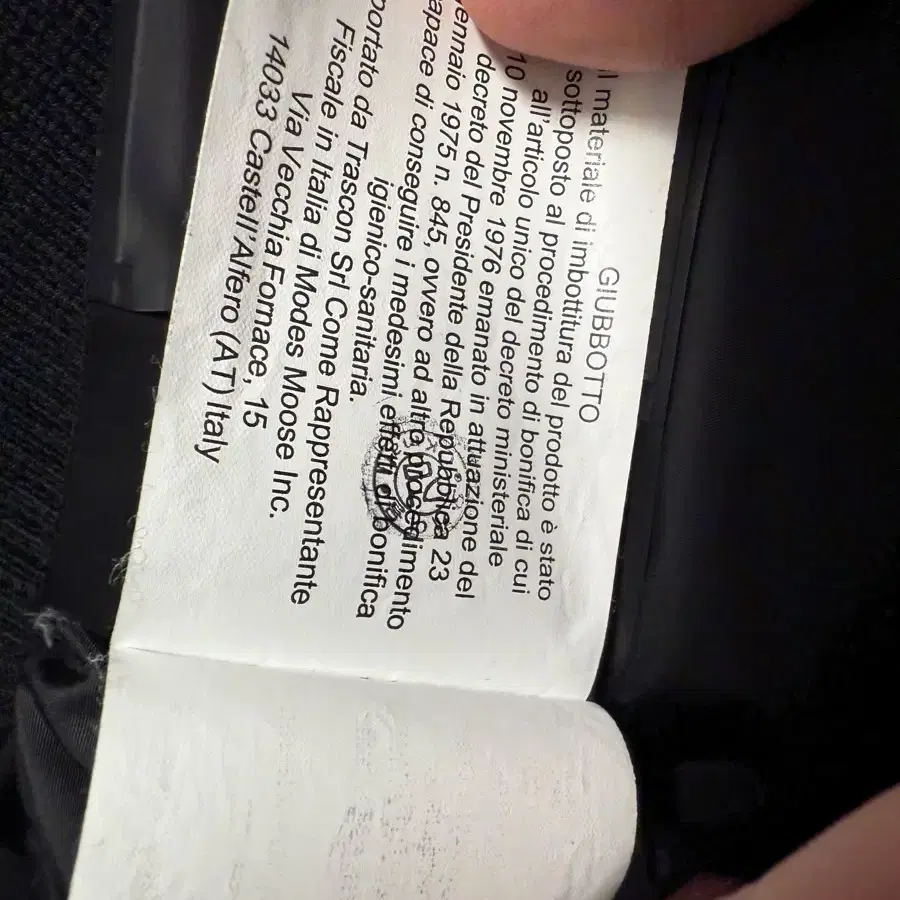 GIUBBOTTO
il materiale di imbottitura del prodotto è stato
sottoposto al procedimento di bonifica di cui
all'articolo unico del decreto ministeriale
10 novembre 1976 emanato in attuazione del
decreto del Presidente della Repubblica 23
ennaio 1975 n. 845, ovvero ad altro procedimento
apace di conseguire i medesimi effetti di bonifica
igienico-sanitaria.
portato da Trascon Srl Come Rappresentante
Fiscale in Italia di Modes Moose Inc.
Via Vecchia Fornace, 15
14033 Castell'Alfero (AT) Italy